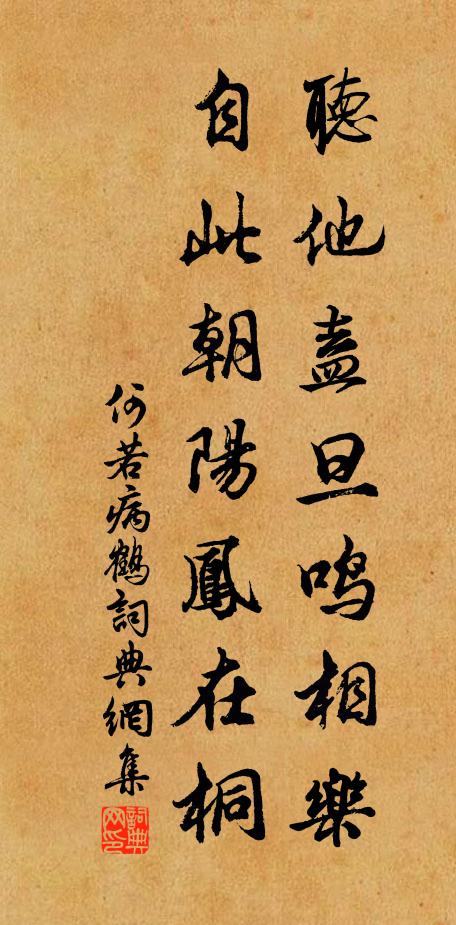 聽他盍旦鳴相樂
自此朝陽鳳在桐
何若病鶴詞典網集
詞典网印